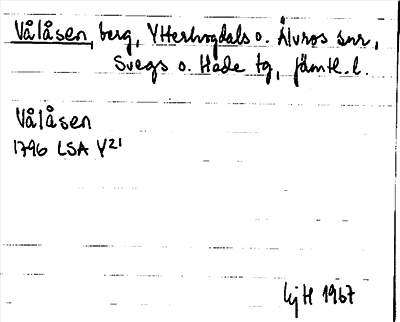 Vålåsen, berg, Ytterhogdals o. Älvros snr,
Svegs o. Hede tg, Jämtl. l.
Vålåsen
1796 LSA Y21
1967